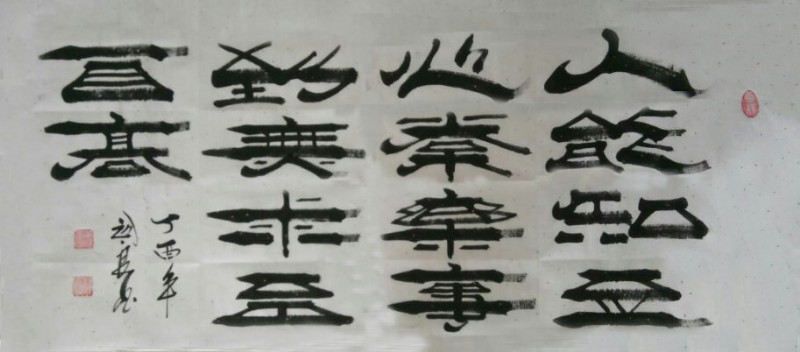 人能知足
心常樂事
到無求品
自高
丁酉年